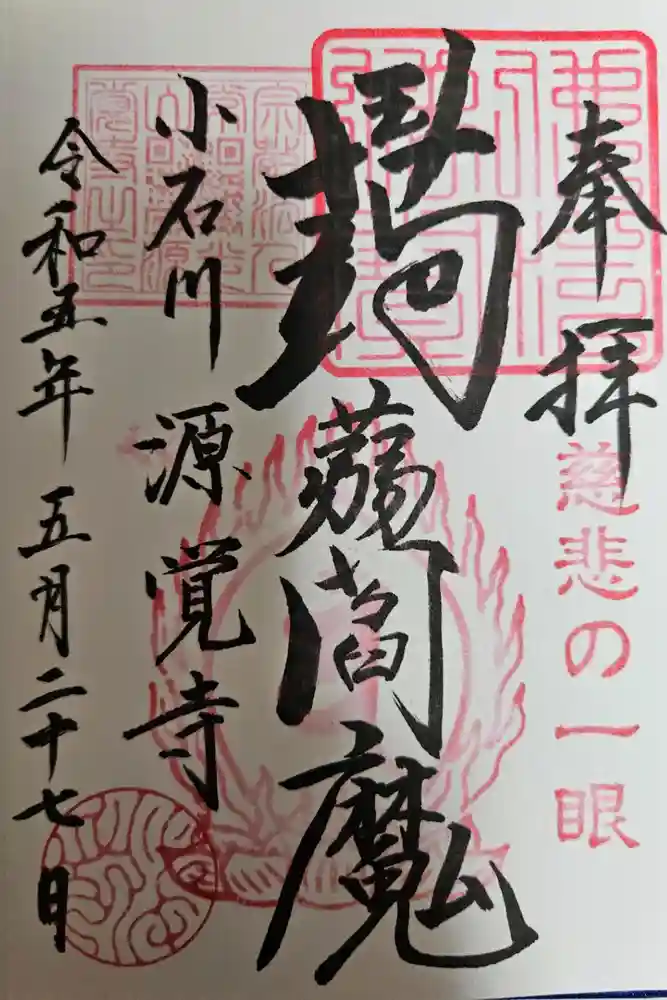 奉拝
慈悲の一眼
蒟蒻閻魔
小石川 源覚寺
令和五年 五月二十七日